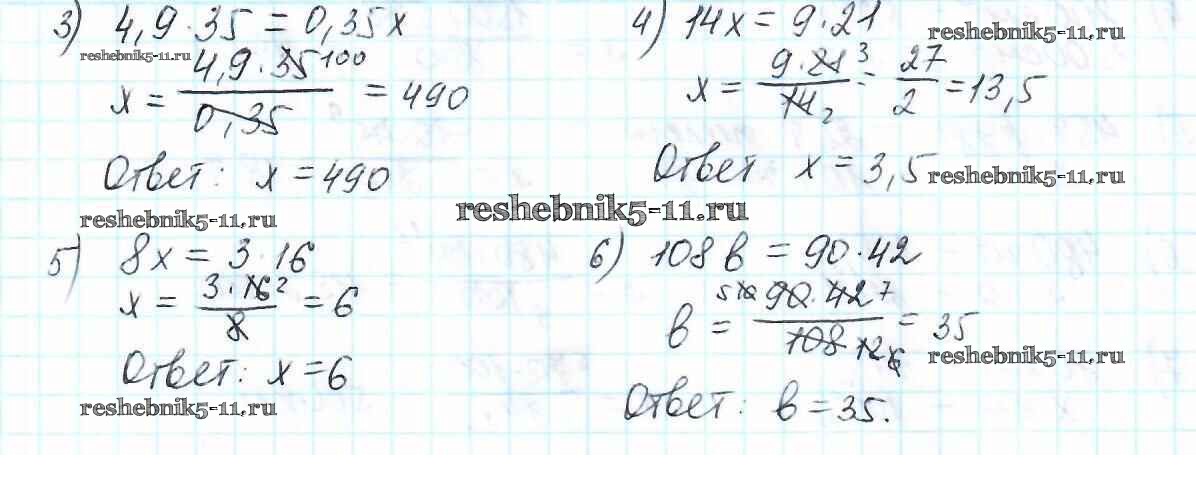 3) 4,9·35 = 0,35x
4) 14x = 9·21
reshebnik5-11.ru
reshebnik5-11.ru
x = 4,9·35 100 / 0,35 = 490
x = 9·21 3 / 14 2 = 27/2 = 13,5
Ответ: x = 490
Ответ x = 3,5
reshebnik5-11.ru
reshebnik5-11.ru
reshebnik5-11.ru
5) 8x = 3·16
6) 108 в = 90·42
x = 3·16 2 / 8 = 6
в = 5 10 90·42 7 / 108 12 6 = 35
reshebnik5-11.ru
Ответ: x = 6
Ответ: в = 35.
reshebnik5-11.ru